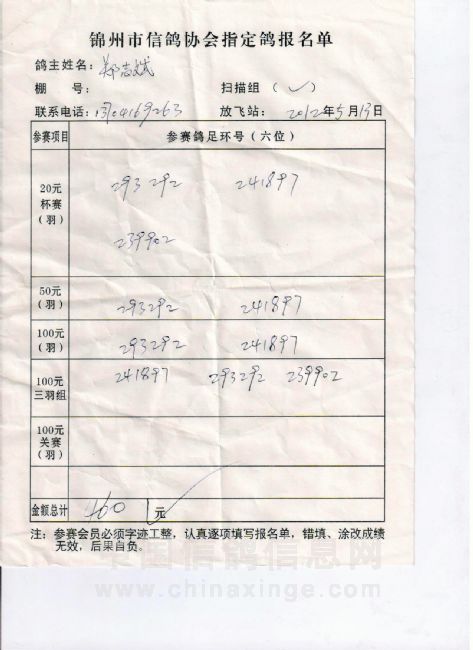 锦州市信鸽协会指定鸽报名单
鸽主姓名：郑志斌
棚 号： 扫描组 （✓）
联系电话：13104169263 放飞站：2012年5月13日
参赛项目 参赛鸽足环号（六位）
20元
杯赛
（羽）
293292 241897
239902
50元
（羽）
293292 241897
100元
（羽）
293292 241897
100元
三羽组
241897 293292 239902
100元
关赛
（羽）
金额总计 460 元
注：参赛会员必须字迹工整，认真逐项填写报名单，错填、涂改成绩
无效，后果自负。
中国信鸽信息网
www.chinaxinge.com